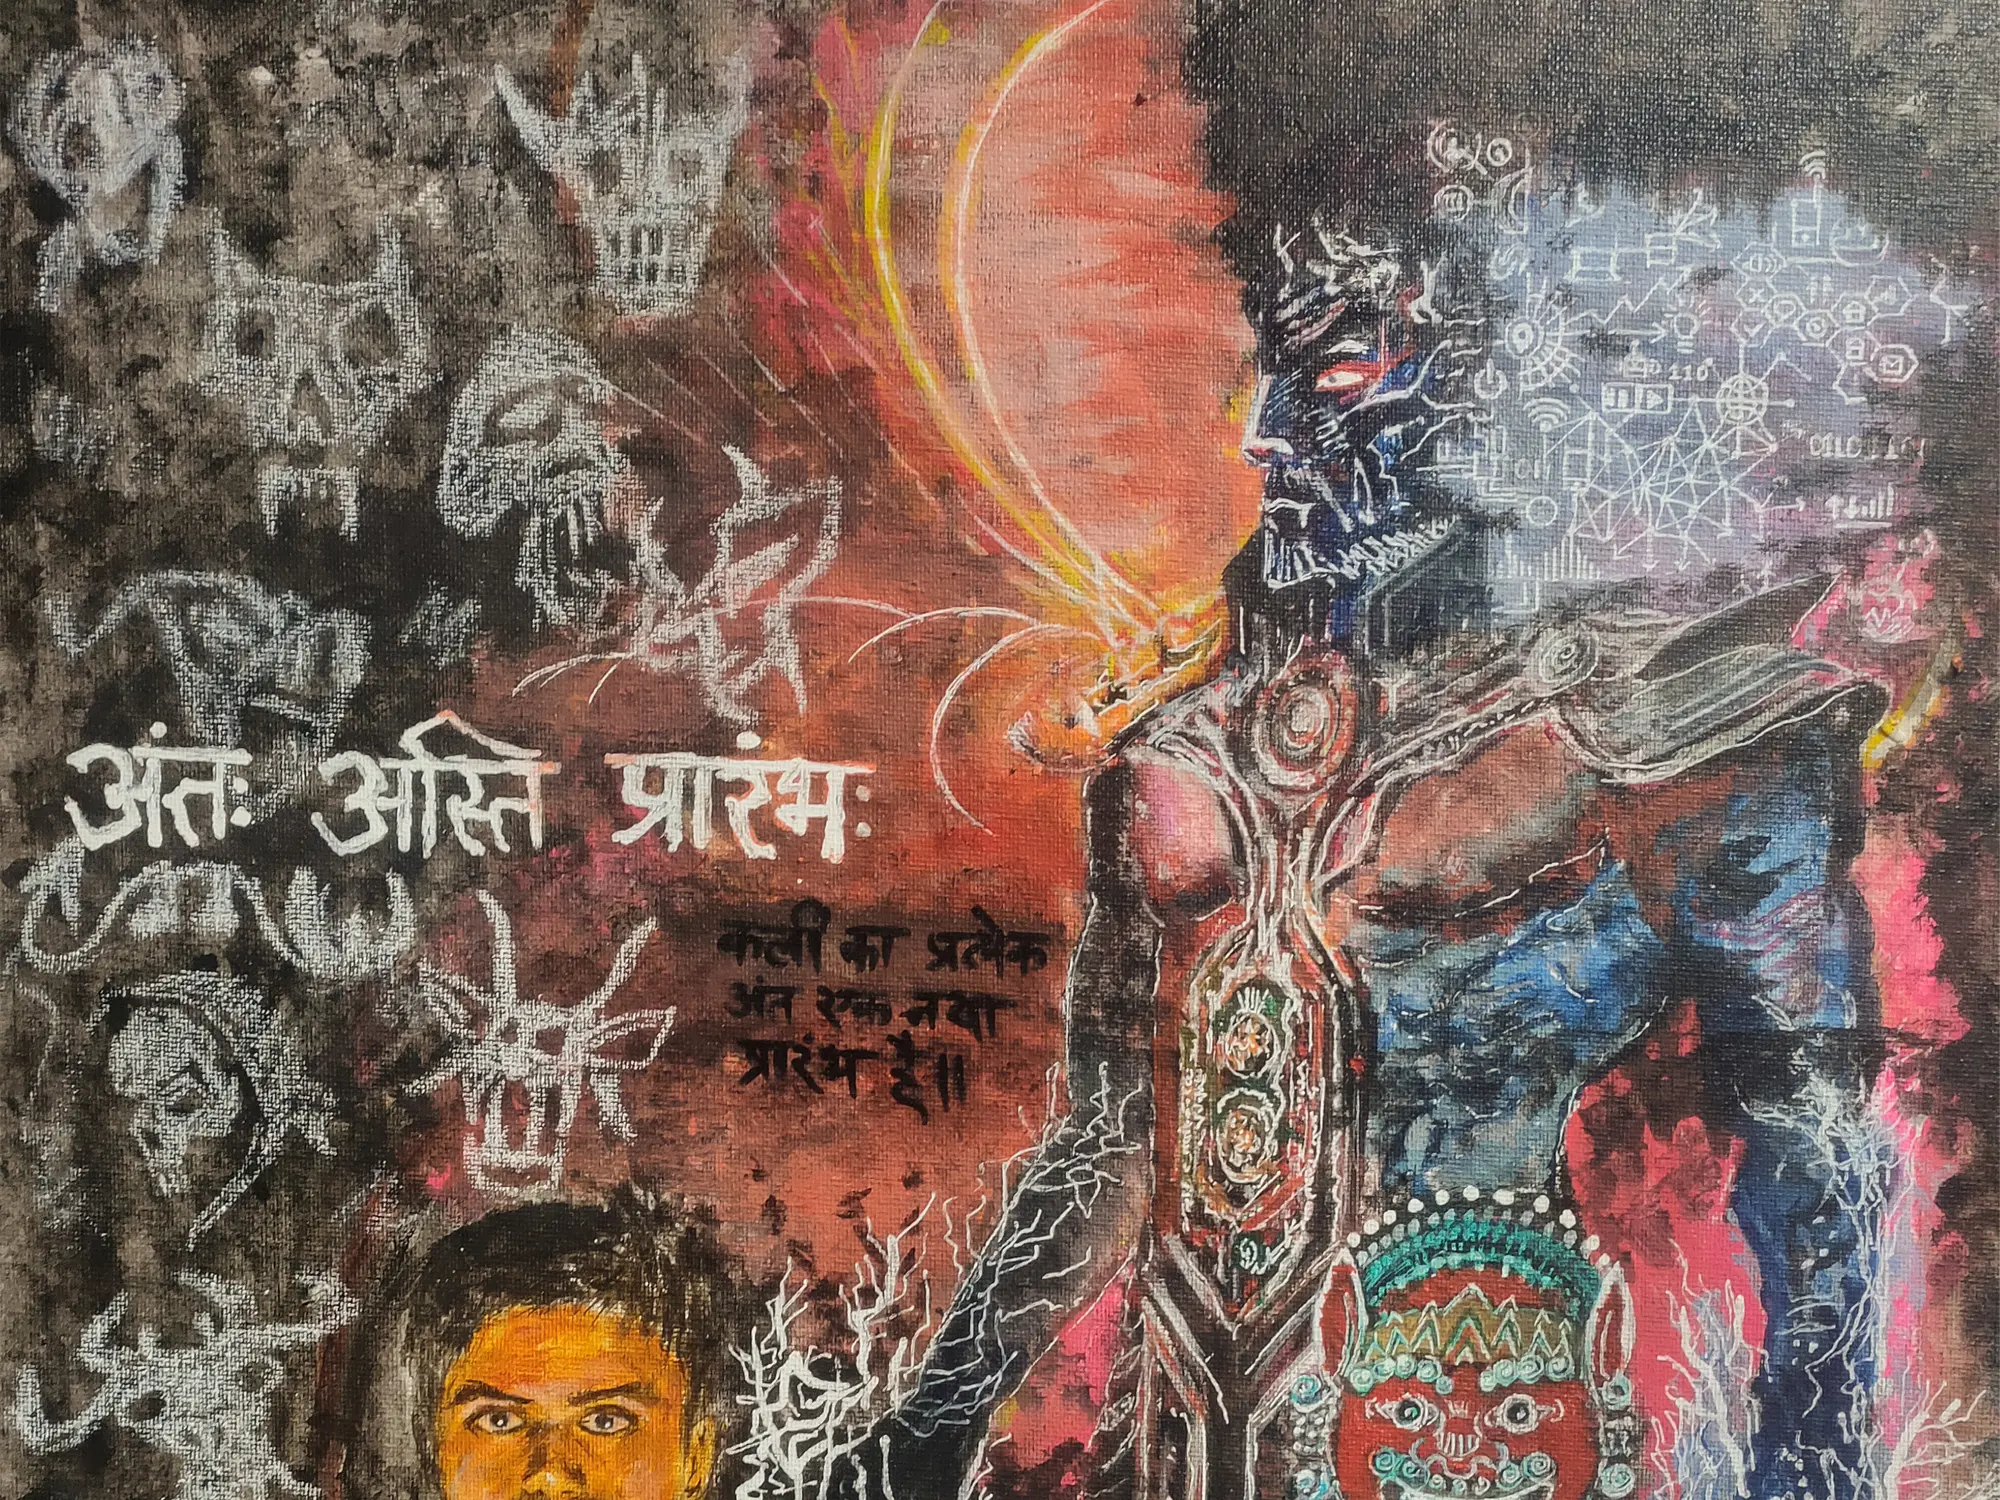 अंतः अस्ति प्रारंभः
कली का प्रत्येक
अंत एक नया
प्रारंभ है॥
0110